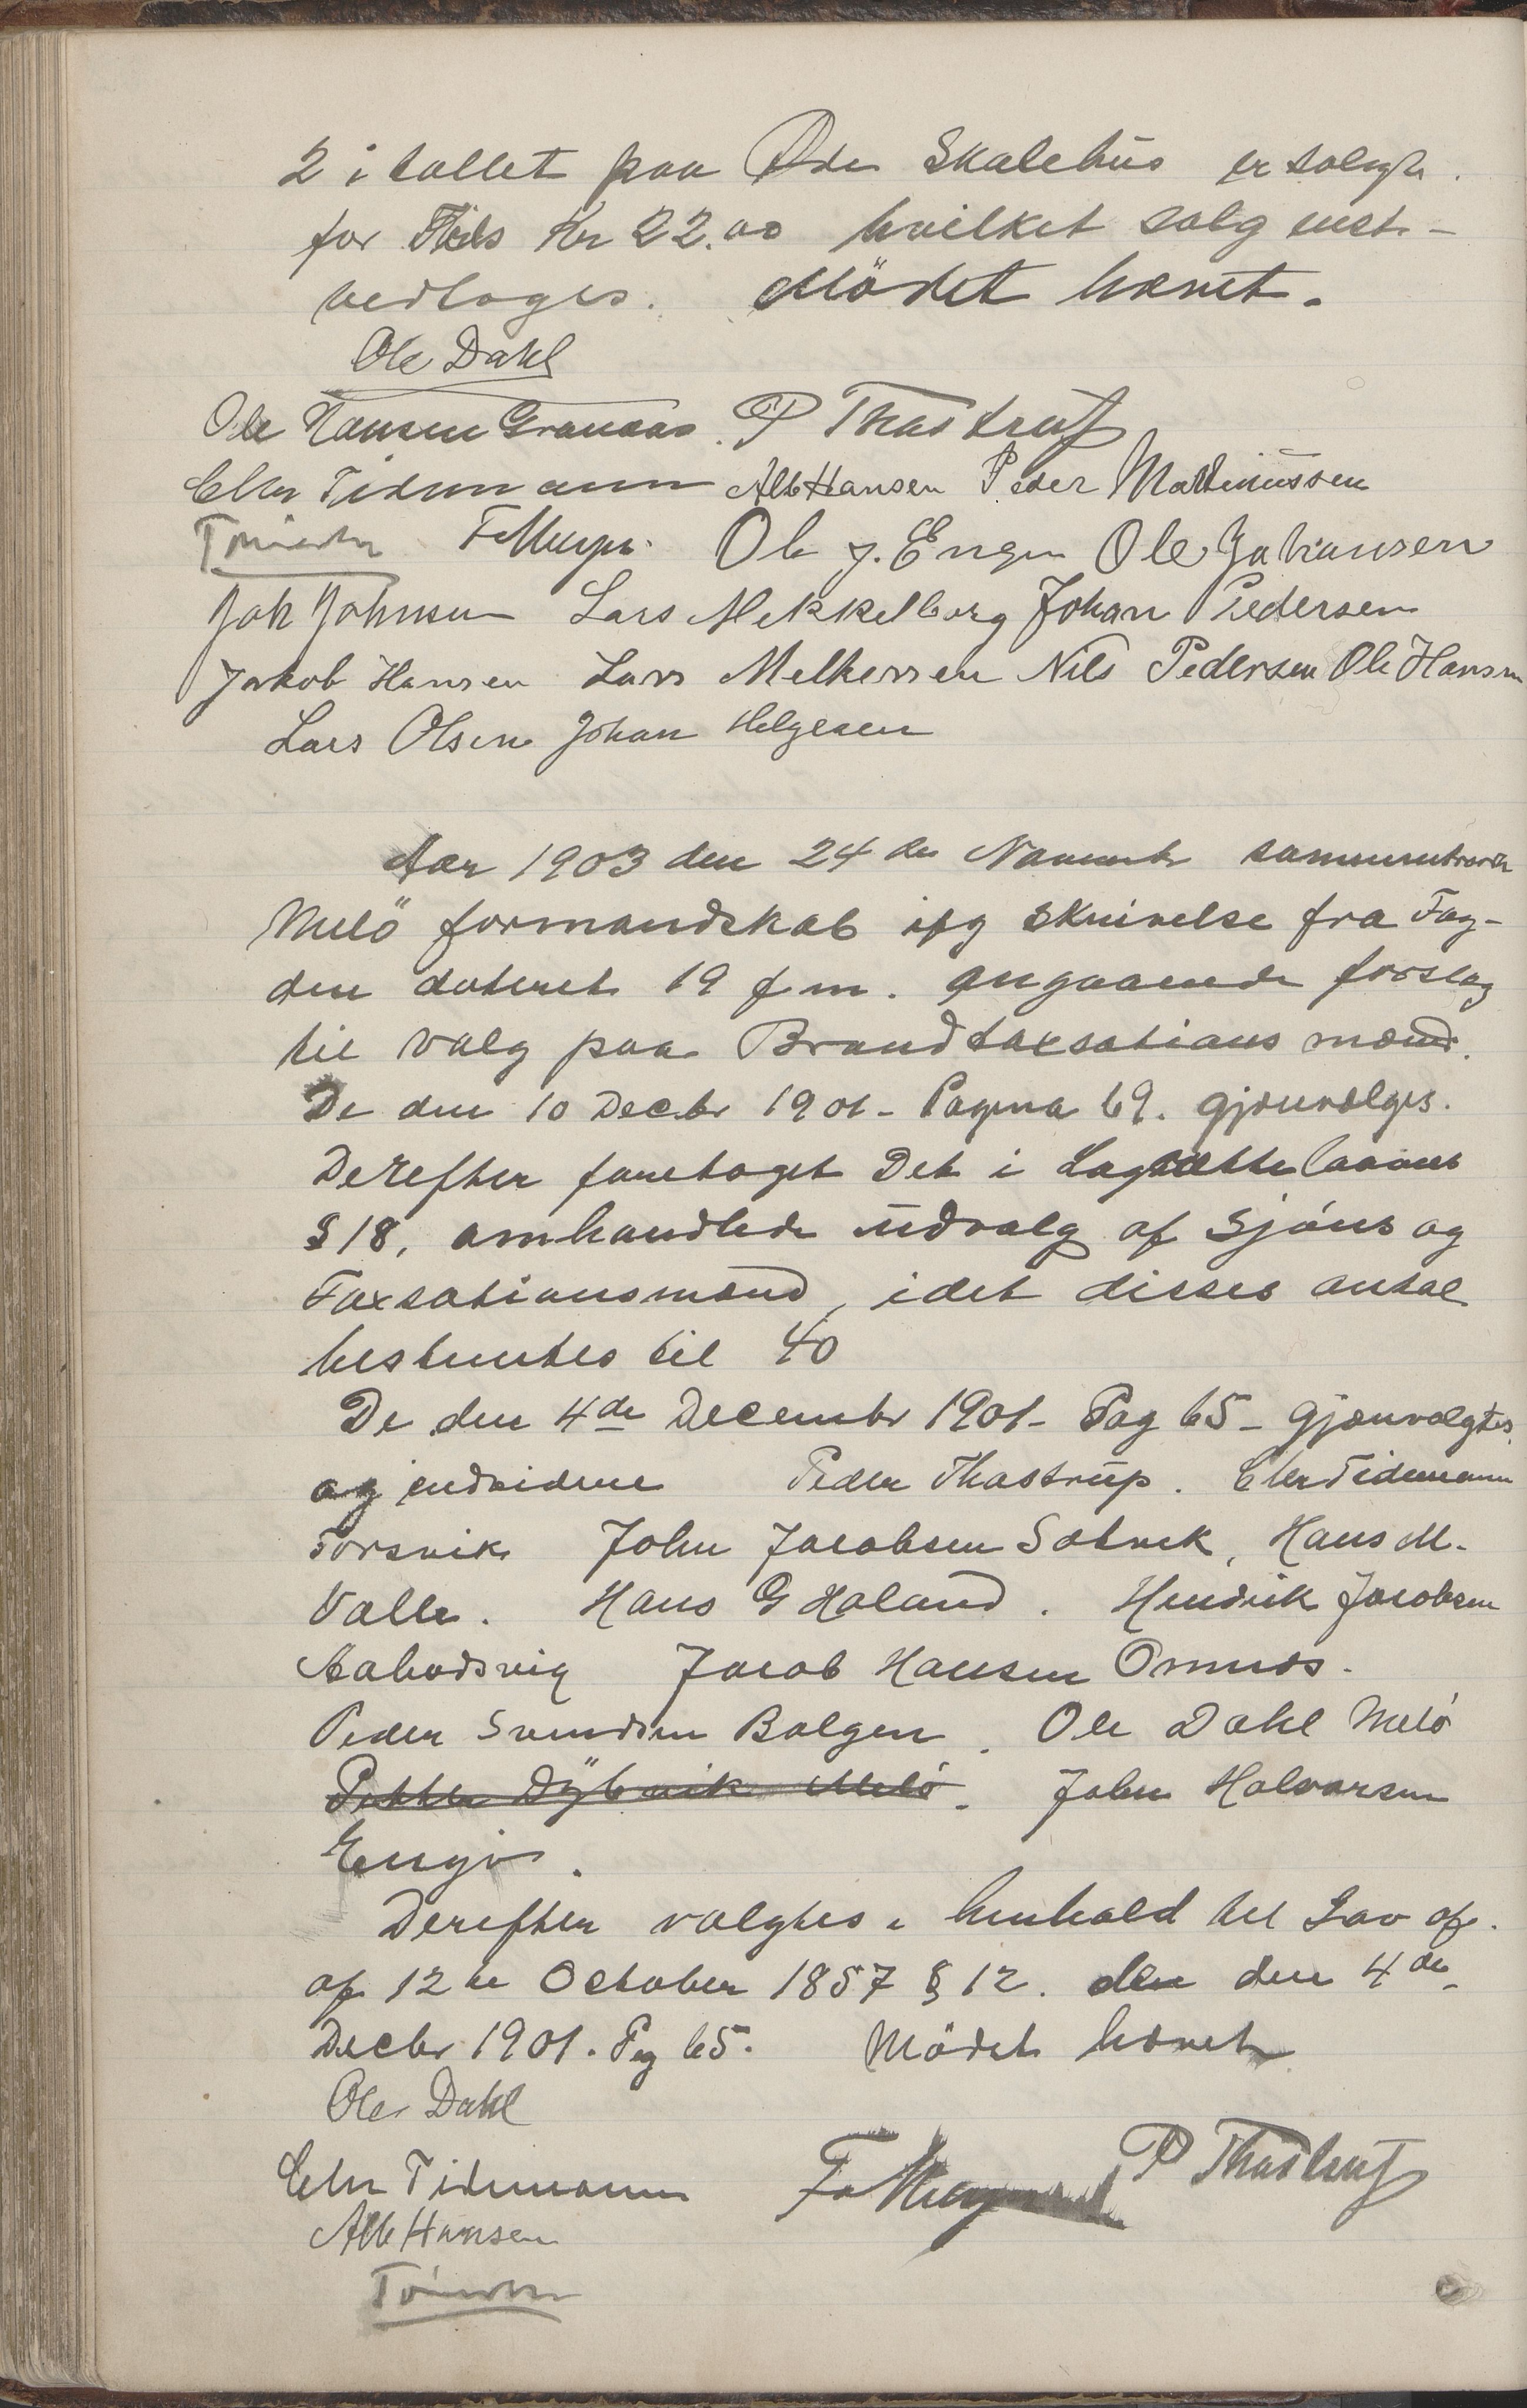 2 i tallet paa Øde Skolehus er solgte.
for Tils Kr 22.00 hvilket salg enst-
vedtoges. Mödet hævet.
Ole Dahl
Ole Hansen Granaas. P Thastrup
Eler Tidemann Alb Hansen Peder Martinussen
F Meyer. Ole J. Engen Ole Johansen
Joh Johnsen Lars Mekkelborg Johan Pedersen
Jakob Hansen Lars Melkersen Nils Pedersen Ole Hansen
Lars Olsen Johan Helgesen
Aar 1903 den 24de Novembr sammentraadte
Melö formandskab ifg skrivelse fra Fog-
den dateret 19 f.m. angaaende forslag
til valg paa Brandtaxsations mænd.
De den 10 Decbr 1901 - Pagina 69. gjenvælges.
Derefter foretoges Det i Lagrettelovens
§ 18, omhandlede udvalg af Sjöns og
Taxsationsmænd, idet disses antal
bestemtes til 40
De den 4de Decembr 1901 - Pag 65 - gjenvalgtes
og endvidere Peder Thastrup. Eler Tidemann
Forsvik John Jacobsen Sætvik, Hans M.
Valle. Hans G Haland. Hendrik Jacobsen
Aabodsvig Jacob Hansen Ornæs.
Peder Svendsen Bolgen. Ole Dahl Melö
Petter Dybvik Melö. John Halvorsen
Engö.
Derefter valgtes i henhold til Lov af.
af 12te October 1857 § 12. den den 4de
Decbr 1901. Pag 65. Mödet hævet
Ole Dahl
Eler Tidemann F Meyer P Thastrup
Alb Hansen